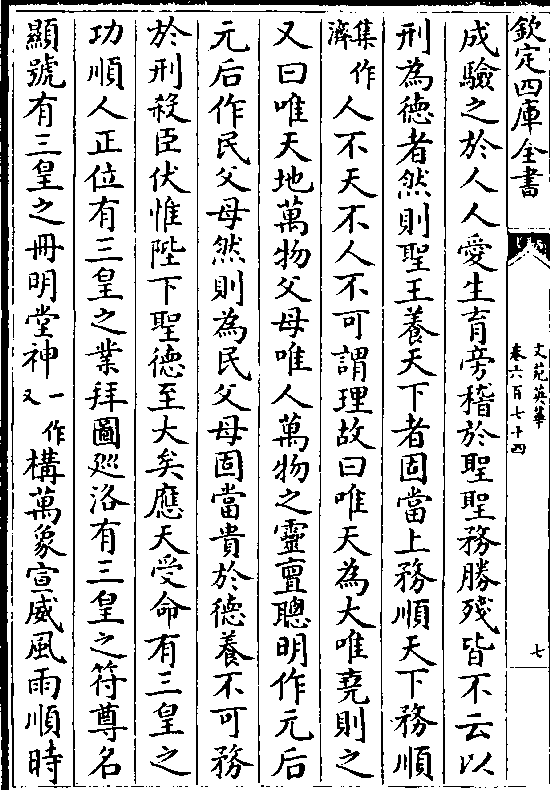 欽定四庫全書
文苑英華
卷六百七十四
七
成驗之於人人愛生育旁稽於聖聖務勝殘皆不云以
刑為德者然則聖王養天下者固當上務順天下務順
集作濟人不天不人不可謂理故曰唯天為大唯堯則之
又曰唯天地萬物父母唯人萬物之靈亶聰明作元后
元后作民父母然則為民父母固當貴於德養不可務
於刑殺臣伏惟陛下聖德至大矣應天受命有三皇之
功順人正位有三皇之業拜圖廵洛有三皇之符尊名
顯號有三皇之冊明堂神一作又構萬象宣威風雨順時